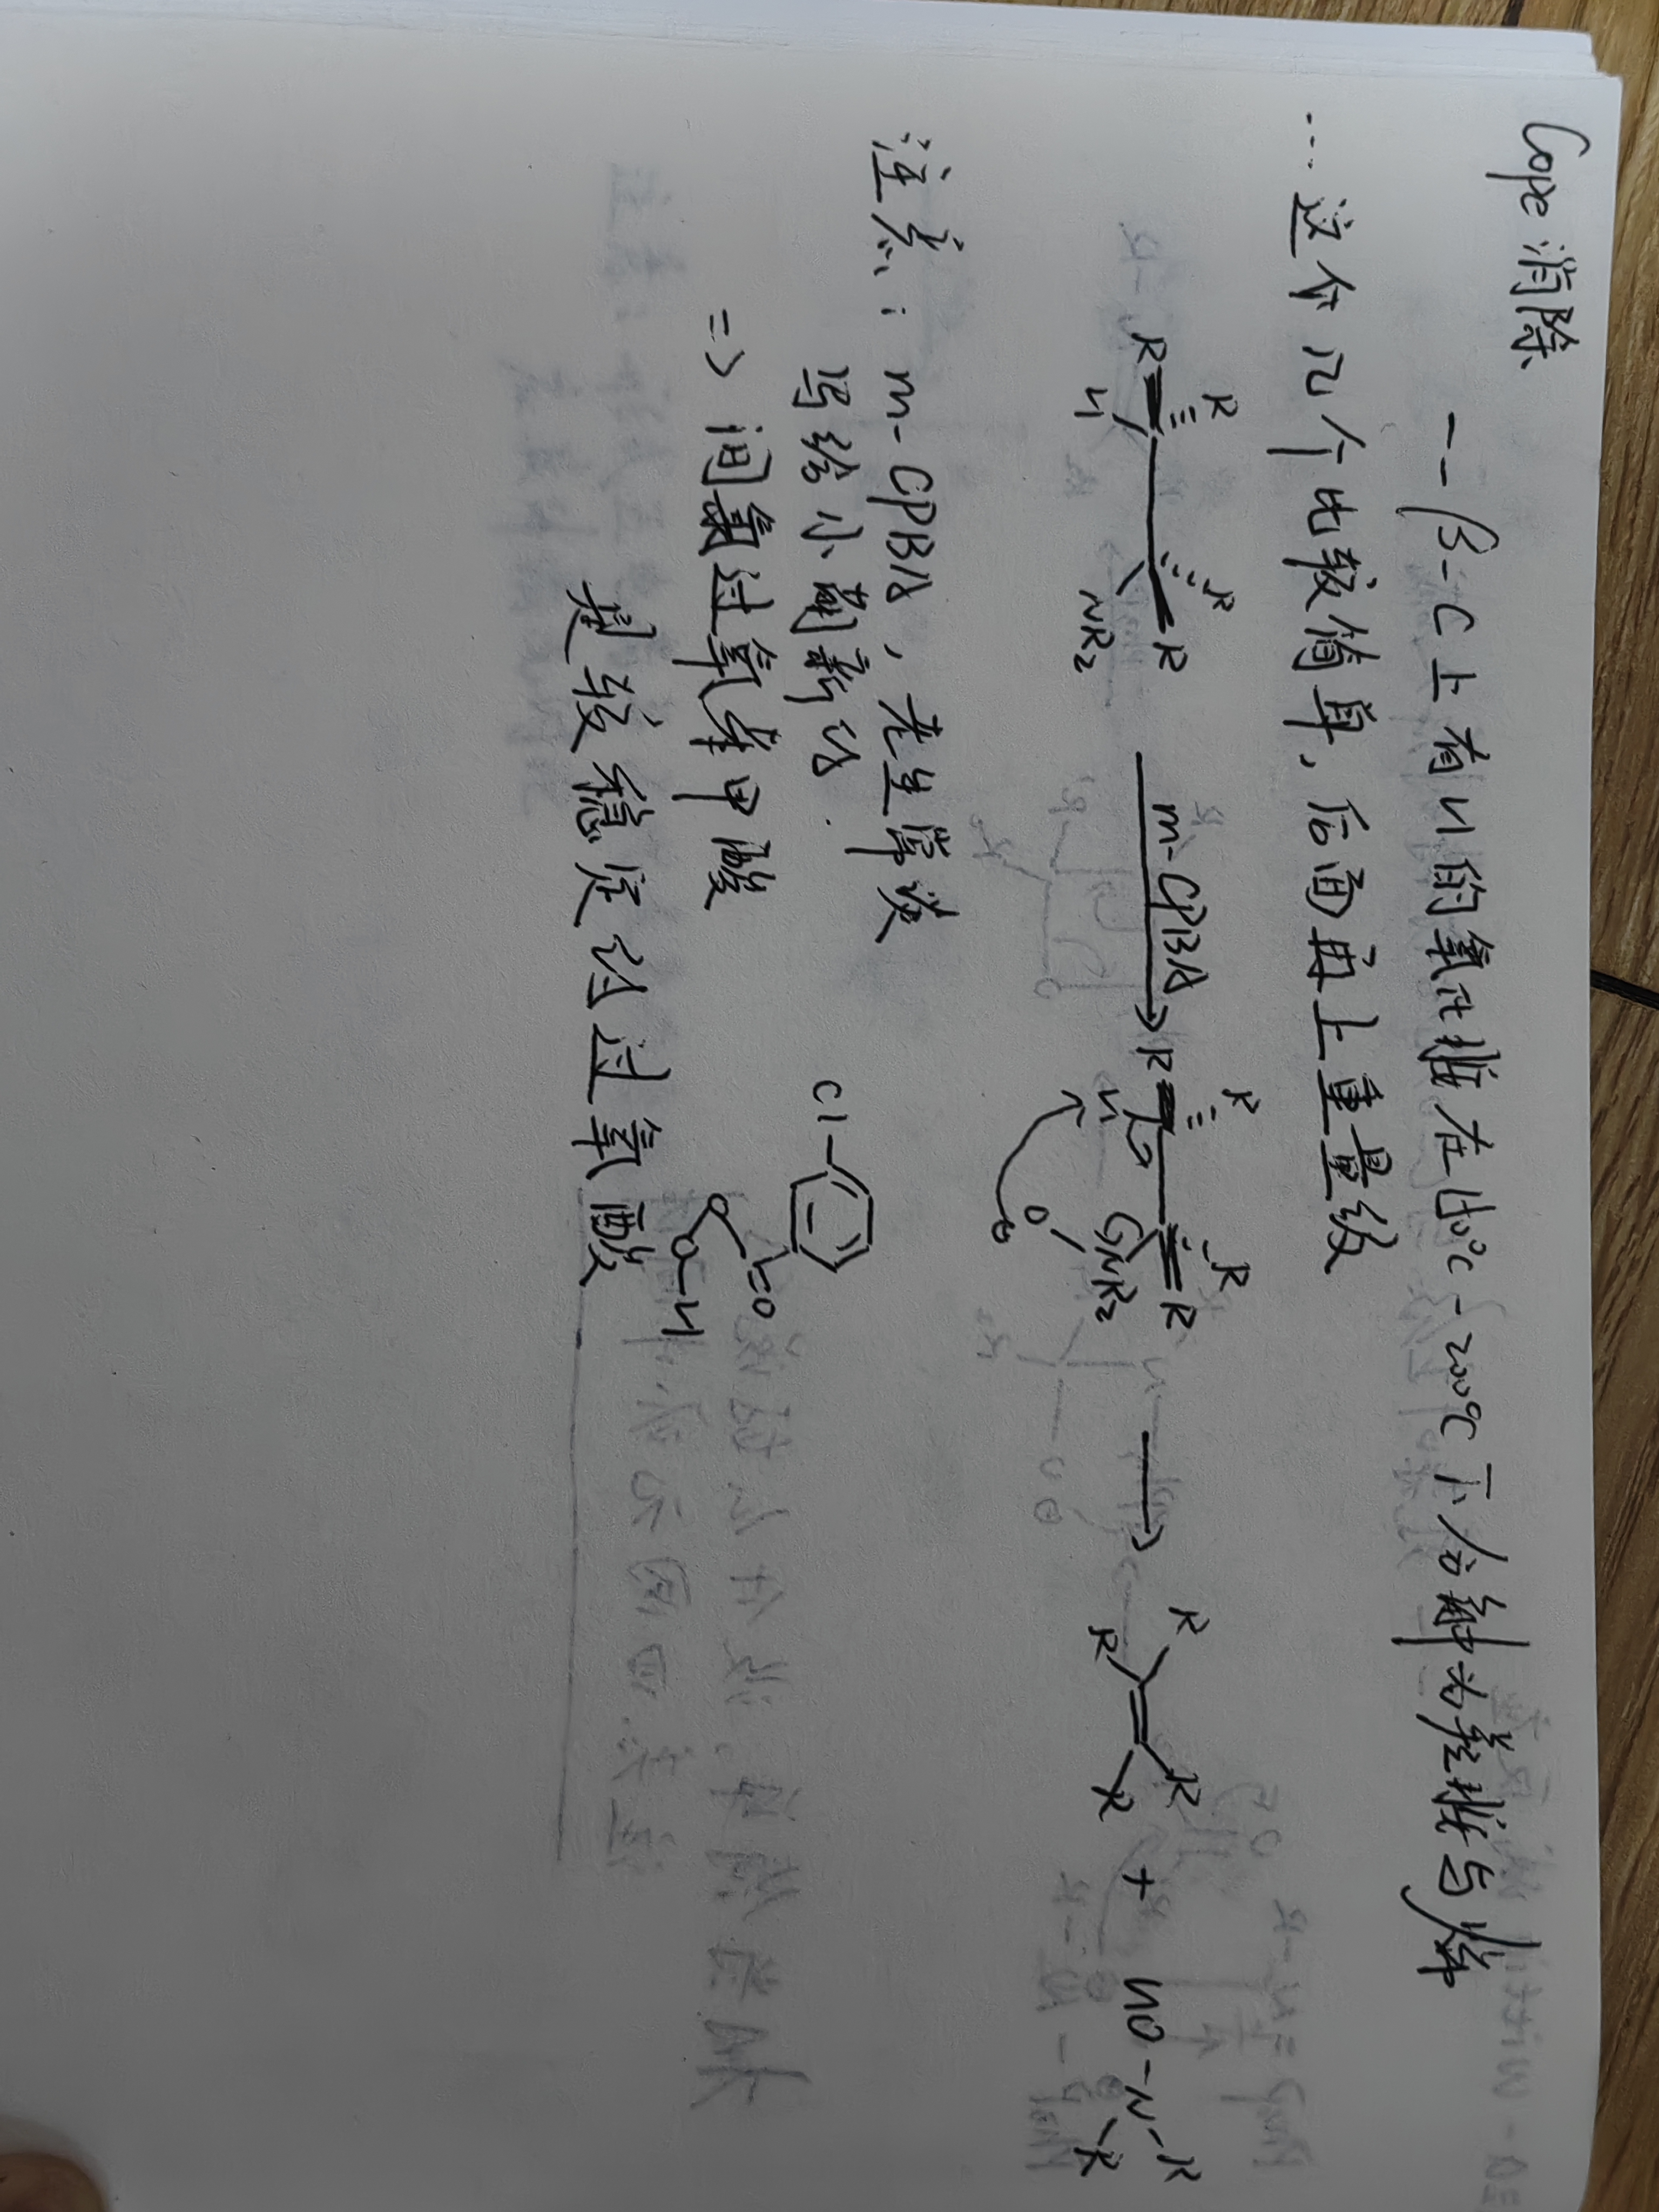 Cope 消除
--β-C上有H的氧化胺在150℃-200℃下分解为羟胺与烯
…这个几个比较简单,后面再上重量级
R R H R R NR₂ m-CPBA R R H R R O⊖ NR₂ R R R R + HO-N-R R
注意:m-CPBA,老生常谈
写给小萌新的.
=> 间氯过氧苯甲酸
Cl O O O-H
是较稳定的过氧酸